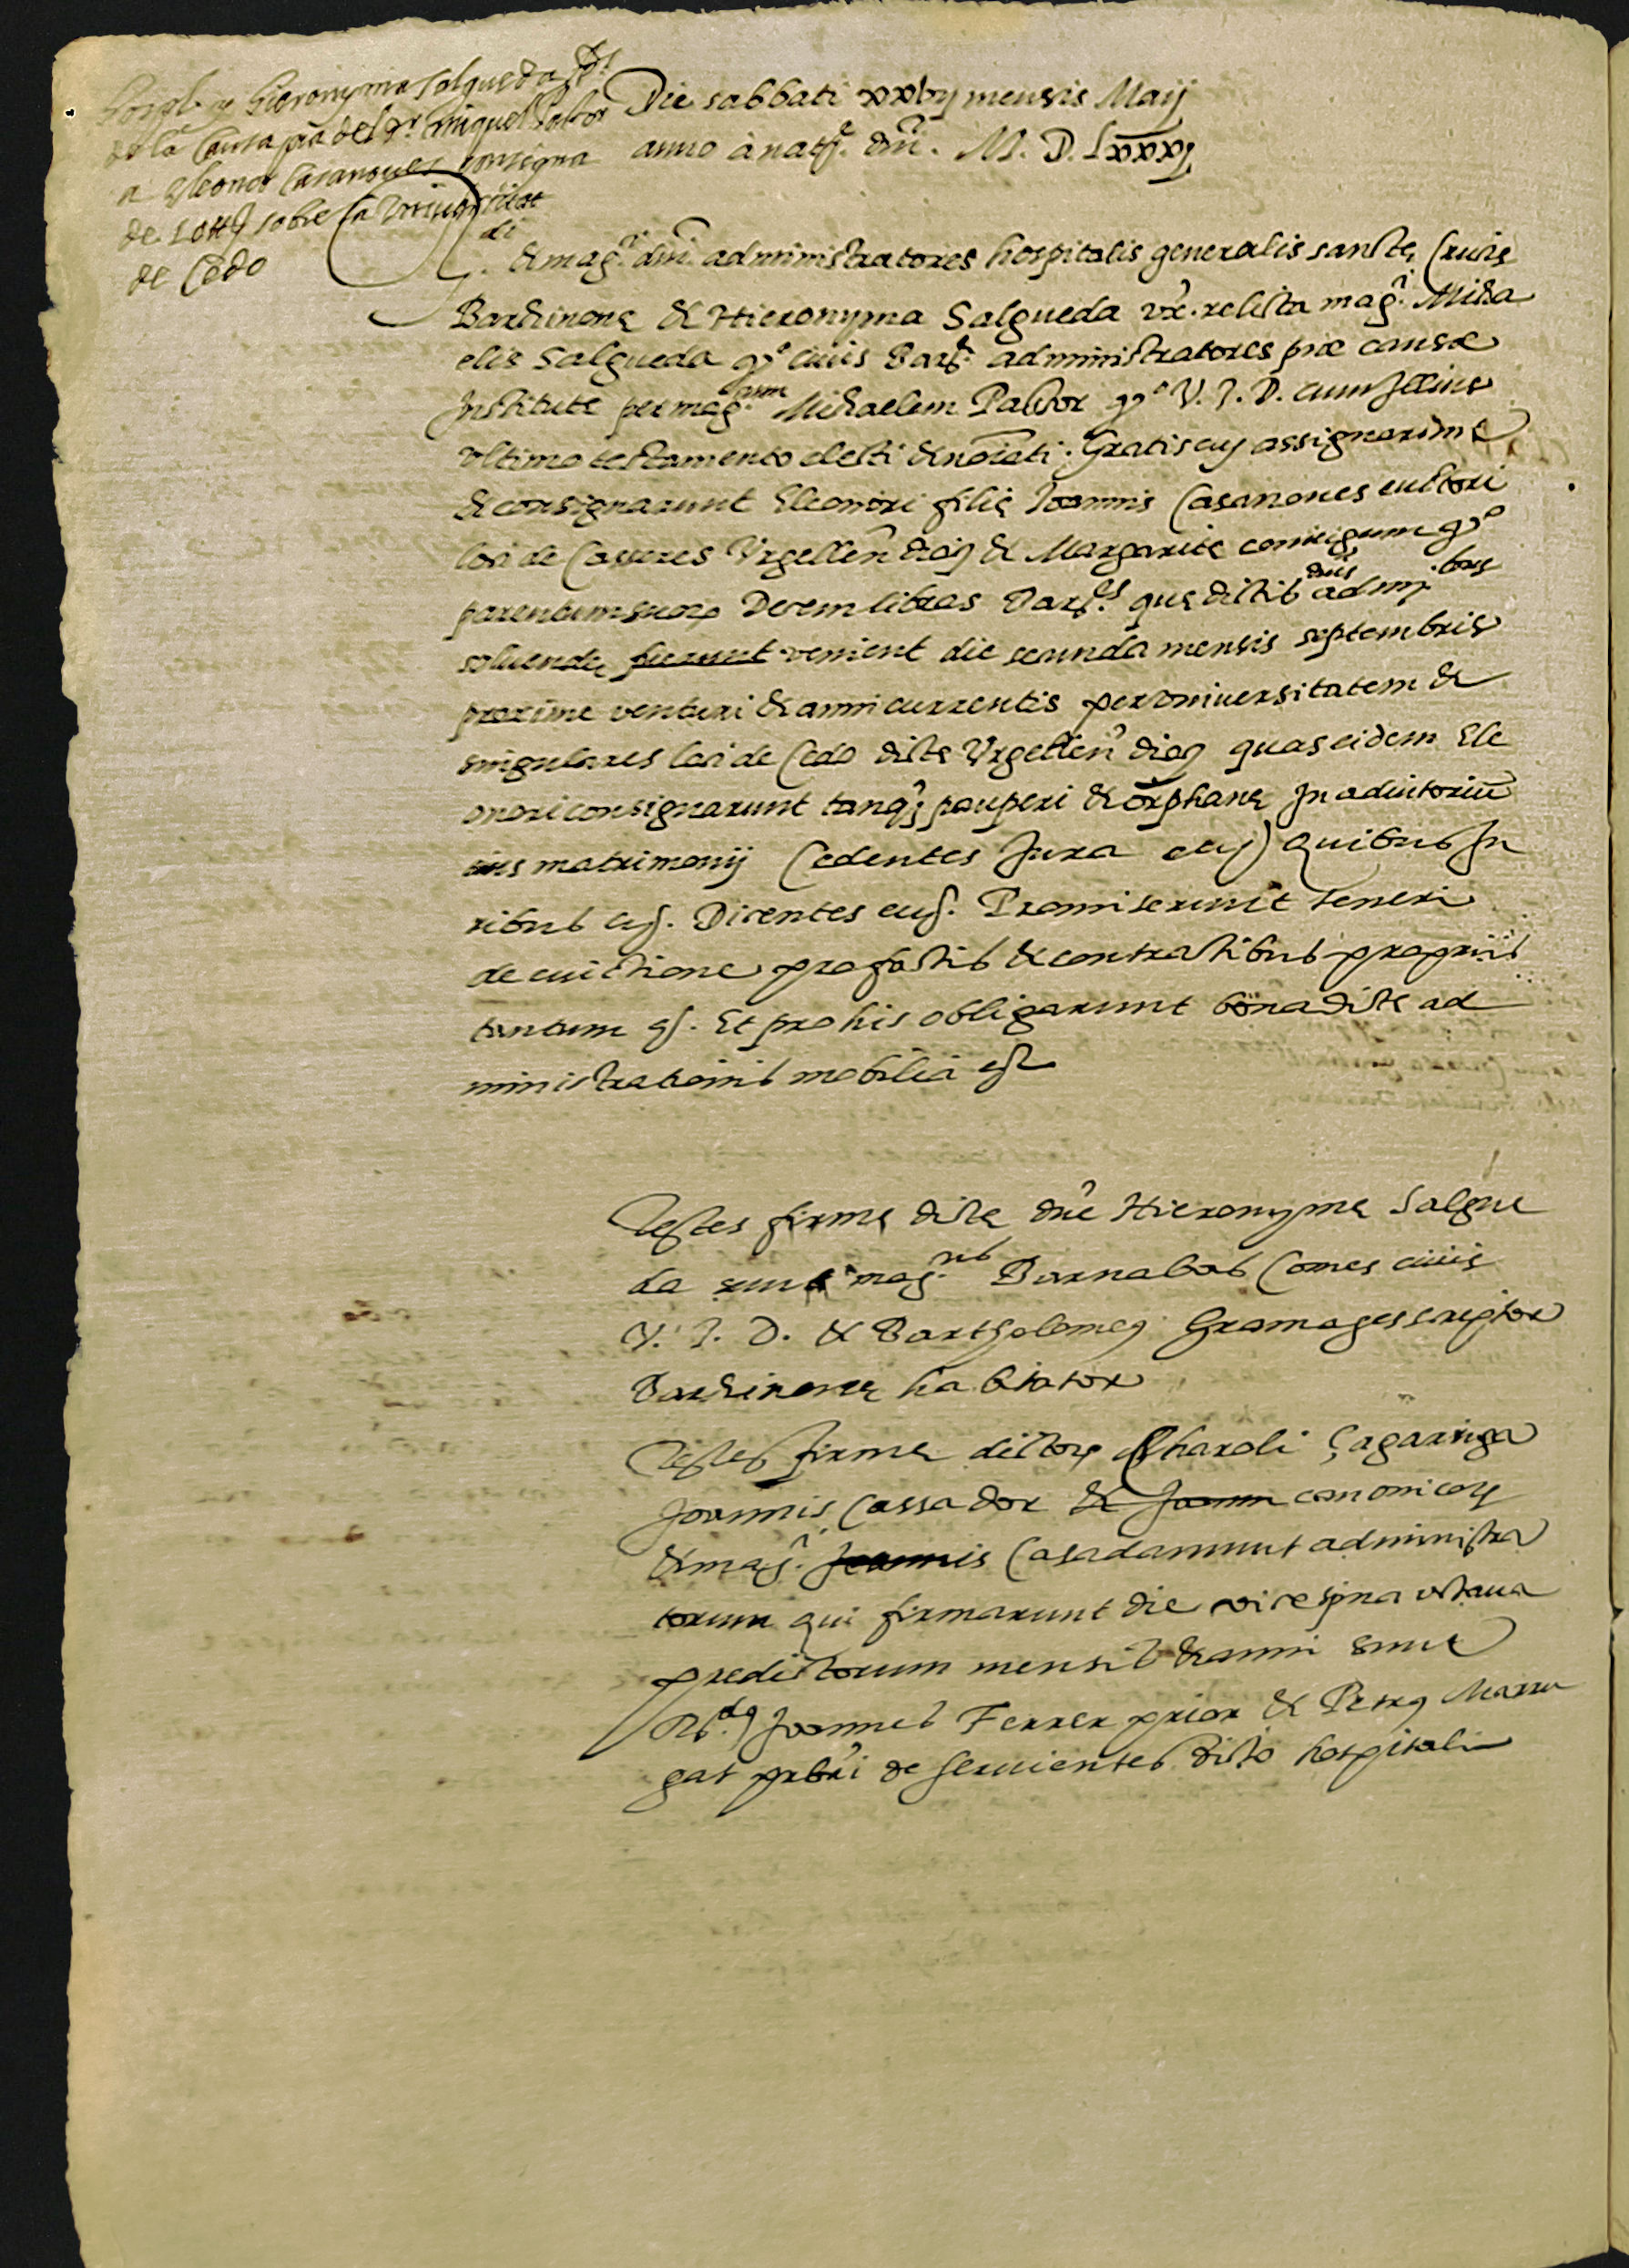 Hospl. y Hieronyma Salgueda
de la Causa pia del qº. Miquel Pastor
a Eleonor Casanoves consigna
de 10 ₶ sobre la Universitat
de Cedo
Die sabbati xxvij mensis Maij
anno à natᵉ. dñi. M. D. Lxxxj
di
& magᶜⁱ. dñi administratores hospitalis generalis sanctę Crucis
Barchinonę & Hieronyma Salgueda vx̃. relicta magᶜⁱ. Micha
elis Salgueda qº. civis Barᵉ. administratores piæ causæ
Institutę per magᶜᵘᵐ. Michaelem Pastor qº. V. J. D. cum illius
ultimo testamento electi & noĩati. Gratis etc assignarunt
& consignarunt Eleonori filię Joannis Casanoves cultori
loci de Casseres Urgelleñ dioc & Margaritę coniugum qº
parentum suoꝝ Decem libras Barᵉˢ. quę dictis dñis admʳᵇᵘˢ
solvendę fuerunt venient die secunda mensis septembris
proxime venturi & anni currentis per vniversitatem &
singulares loci de Cedo dictę Urgelleñ dioc quas eidem Ele
onori consignarunt tanqᵃ̃ pauperi & orphanę In adiutoriũ
eius matrimonij Cedentes Jura etc Quibus Iu
ribus etc. Dicentes etc. Promiserunt teneri
de evictione pro factis & contractibus propriis
tantum etc. Et pro his obligarunt bona dictę ad
ministrationis mobilia etc
Testes firmę dictę dñe Hieronymę Salgue
da sunt magᶜᵘˢ Barnabas Comes civis
V. J. D. & Bartholomeꝰ Gramages scriptor
Barchinonę habitator
Testes firmę dictoꝝ Charoli Çagarriga
Joannis Cassador & Joann canonicoꝝ
& magᶜⁱ. Joannis Casadamunt administra
torum qui firmarunt die vicesima octava
predictorum mensis & anni sunt
Rᵈᵘˢ Joannes Ferrer prior & Petrꝰ Marru
gat prbr̃i deservientes dicto hospitali